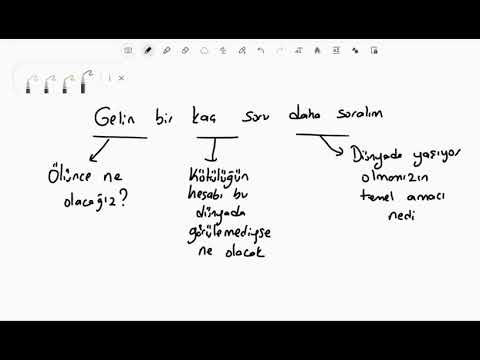 Gelin bir kaç soru daha soralım
Ölünce ne
olacağız?
Kötülüğün
hesabı bu
dünyada
görülemediyse
ne olacak
Dünyada yaşıyor
olmamızın
temel amacı
nedi